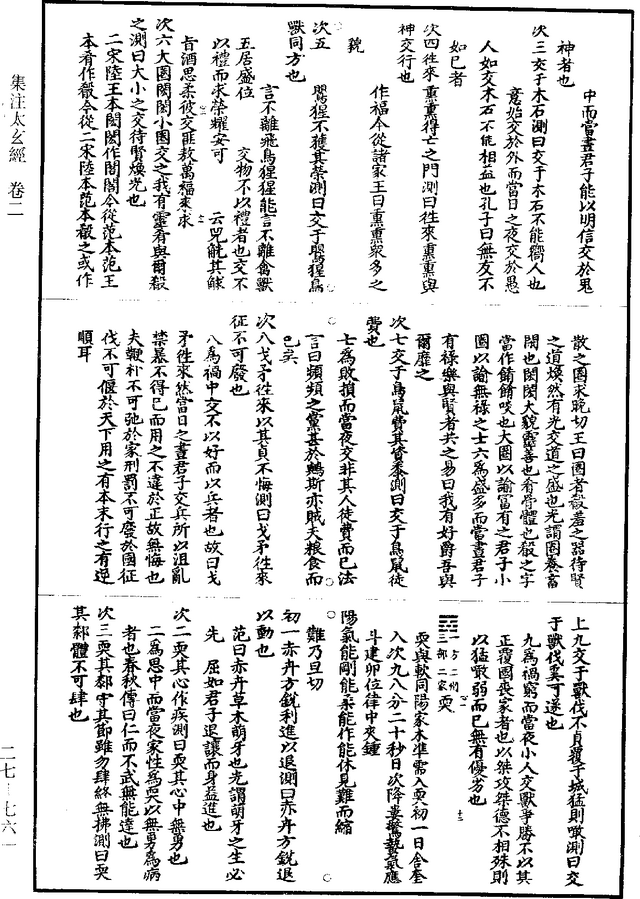 集注太玄經　卷二
中而當晝君子能以明信交於鬼
神者也
次三交于木石測曰交于木石不能嚮人也
意始交於外而當日之夜交於愚
人如交木石不能相益也孔子曰無友不
如已者
次四往來熏熏得亡之門測曰往來熏熏與
神交行也
作福今從諸家王曰熏熏衆多之
貌
次五　鸎猩不獲其榮測曰交于鸎猩鳥
獸同方也
言不離飛鳥猩猩能言不離禽獸
五居盛位　交物不以禮者也交不
以禮而求榮耀安可　云兕觥其觩
旨酒思柔彼交匪敖萬福來求
次六大圈閎閎小圈交之我有靈肴與爾殽
之測曰大小之交待賢煥光也
二宋陸王本閎閎作閤閤今從范本范王
本肴作殽今從二宋陸本范本殽之或作
散之圈求晚切王曰圈者殽羞之器待賢
之道煥然有光交道之盛也光謂圈養畜
閑也閎閎大貌靈善也肴骨體也殽之字
當作餚餚啖也大圈以諭富有之君子小
圈以諭無祿之士六為盛多而當晝君子
有祿樂與賢者共之易曰我有好爵吾與
爾靡之
次七交于鳥鼠費其資黍測曰交于鳥鼠徒
費也
七為敗損而當夜交非其人徒費而已法
言曰頻頻之黨甚於鵯斯亦賊夫粮食而
已矣
次八戈矛往來以其貞不悔測曰戈矛往來
征不可廢也
八為禍中交不以好而以兵者也故曰戈
矛徃來然當日之晝君子交兵所以沮亂
禁暴不得已而用之不違於正故無悔也
夫鞭朴不可弛於家刑罰不可廢於國征
伐不可偃於天下用之有本末行之有逆
順耳
上九交于戰伐不貞覆于城猛則噉測曰交
于戰伐奚可遂也
九為禍窮而當夜小人交戰爭勝不以其
正覆國喪家者也以桀攻桀德不相殊則
以猛噉弱而已無有優劣也
一方二州
三部二家耎
耎與䎡同陽家木準需入耎初一日舍奎
入次九八分二十秒日次降婁驚蟄氣應
斗建卯位律中夾鍾
陽氣能剛能柔能作能休見難而縮
難乃旦切
初一赤卉方銳利進以退測曰赤卉方銳退
以動也
范曰赤卉草木萌牙也光謂萌牙之生必
先　屈如君子退讓而身益進也
次二耎其心作疾測曰耎其心中無勇也
二為思中而當夜家性為耎以無勇為病
者也春秋傳曰仁而不武無能達也
次三耎其䣛守其節雖勿肆終無拂測曰耎
其䣛體不可肆也
二七—七六一